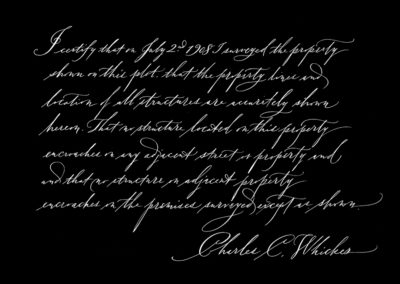 I certify that on July 2nd 1908 I surveyed the property
shown on this plot. that the property lines and
location of all structures are accurately shown
hereon. That no structure located on this property
encroaches on any adjacent street, or property and
and that no structure on adjacent property
encroaches on the premises surveyed except as shown.
Charles C. Whicker